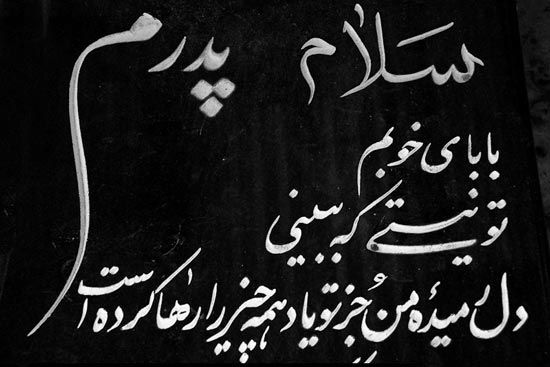 سَلام پدرم
بابای خوبم
تو نیستی که ببینی
دل رمیدهٔ من جُز تو یاد همه چیز را رها کرده است